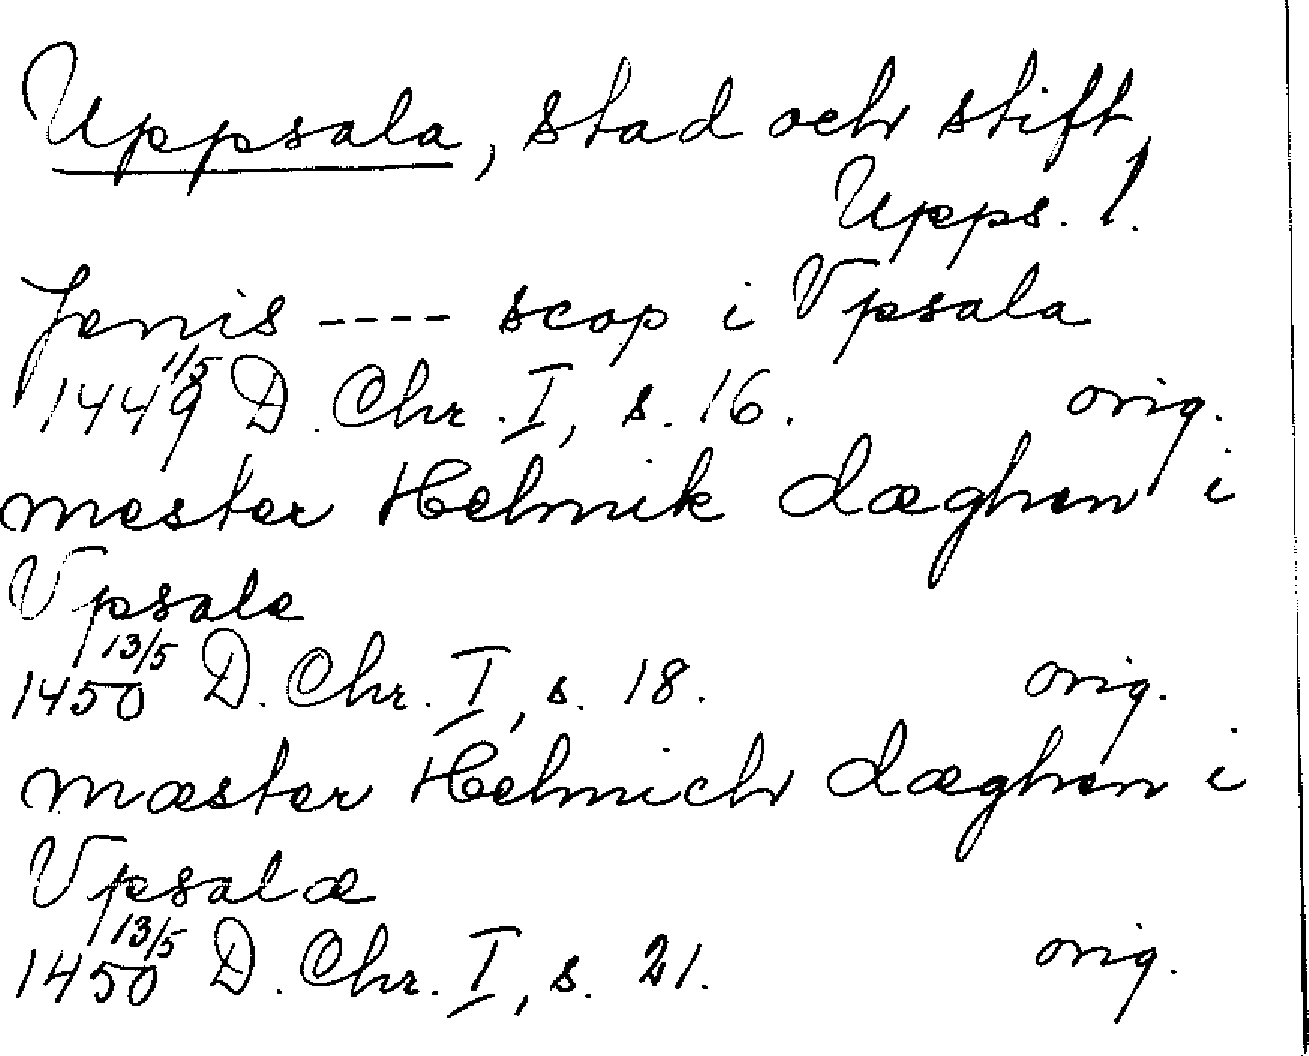 Uppsala, stad och stift,
Upps. l.
Jenis ---- scop i Vpsala
1449 1/5 D. Chr. I, s. 16. orig.
mester Helmik dæghen i
Vpsale
1450 13/5 D. Chr. I, s. 18. orig.
mæster Helmich dæghen i
Vpsalæ
1450 13/5 D. Chr. I, s. 21. orig.